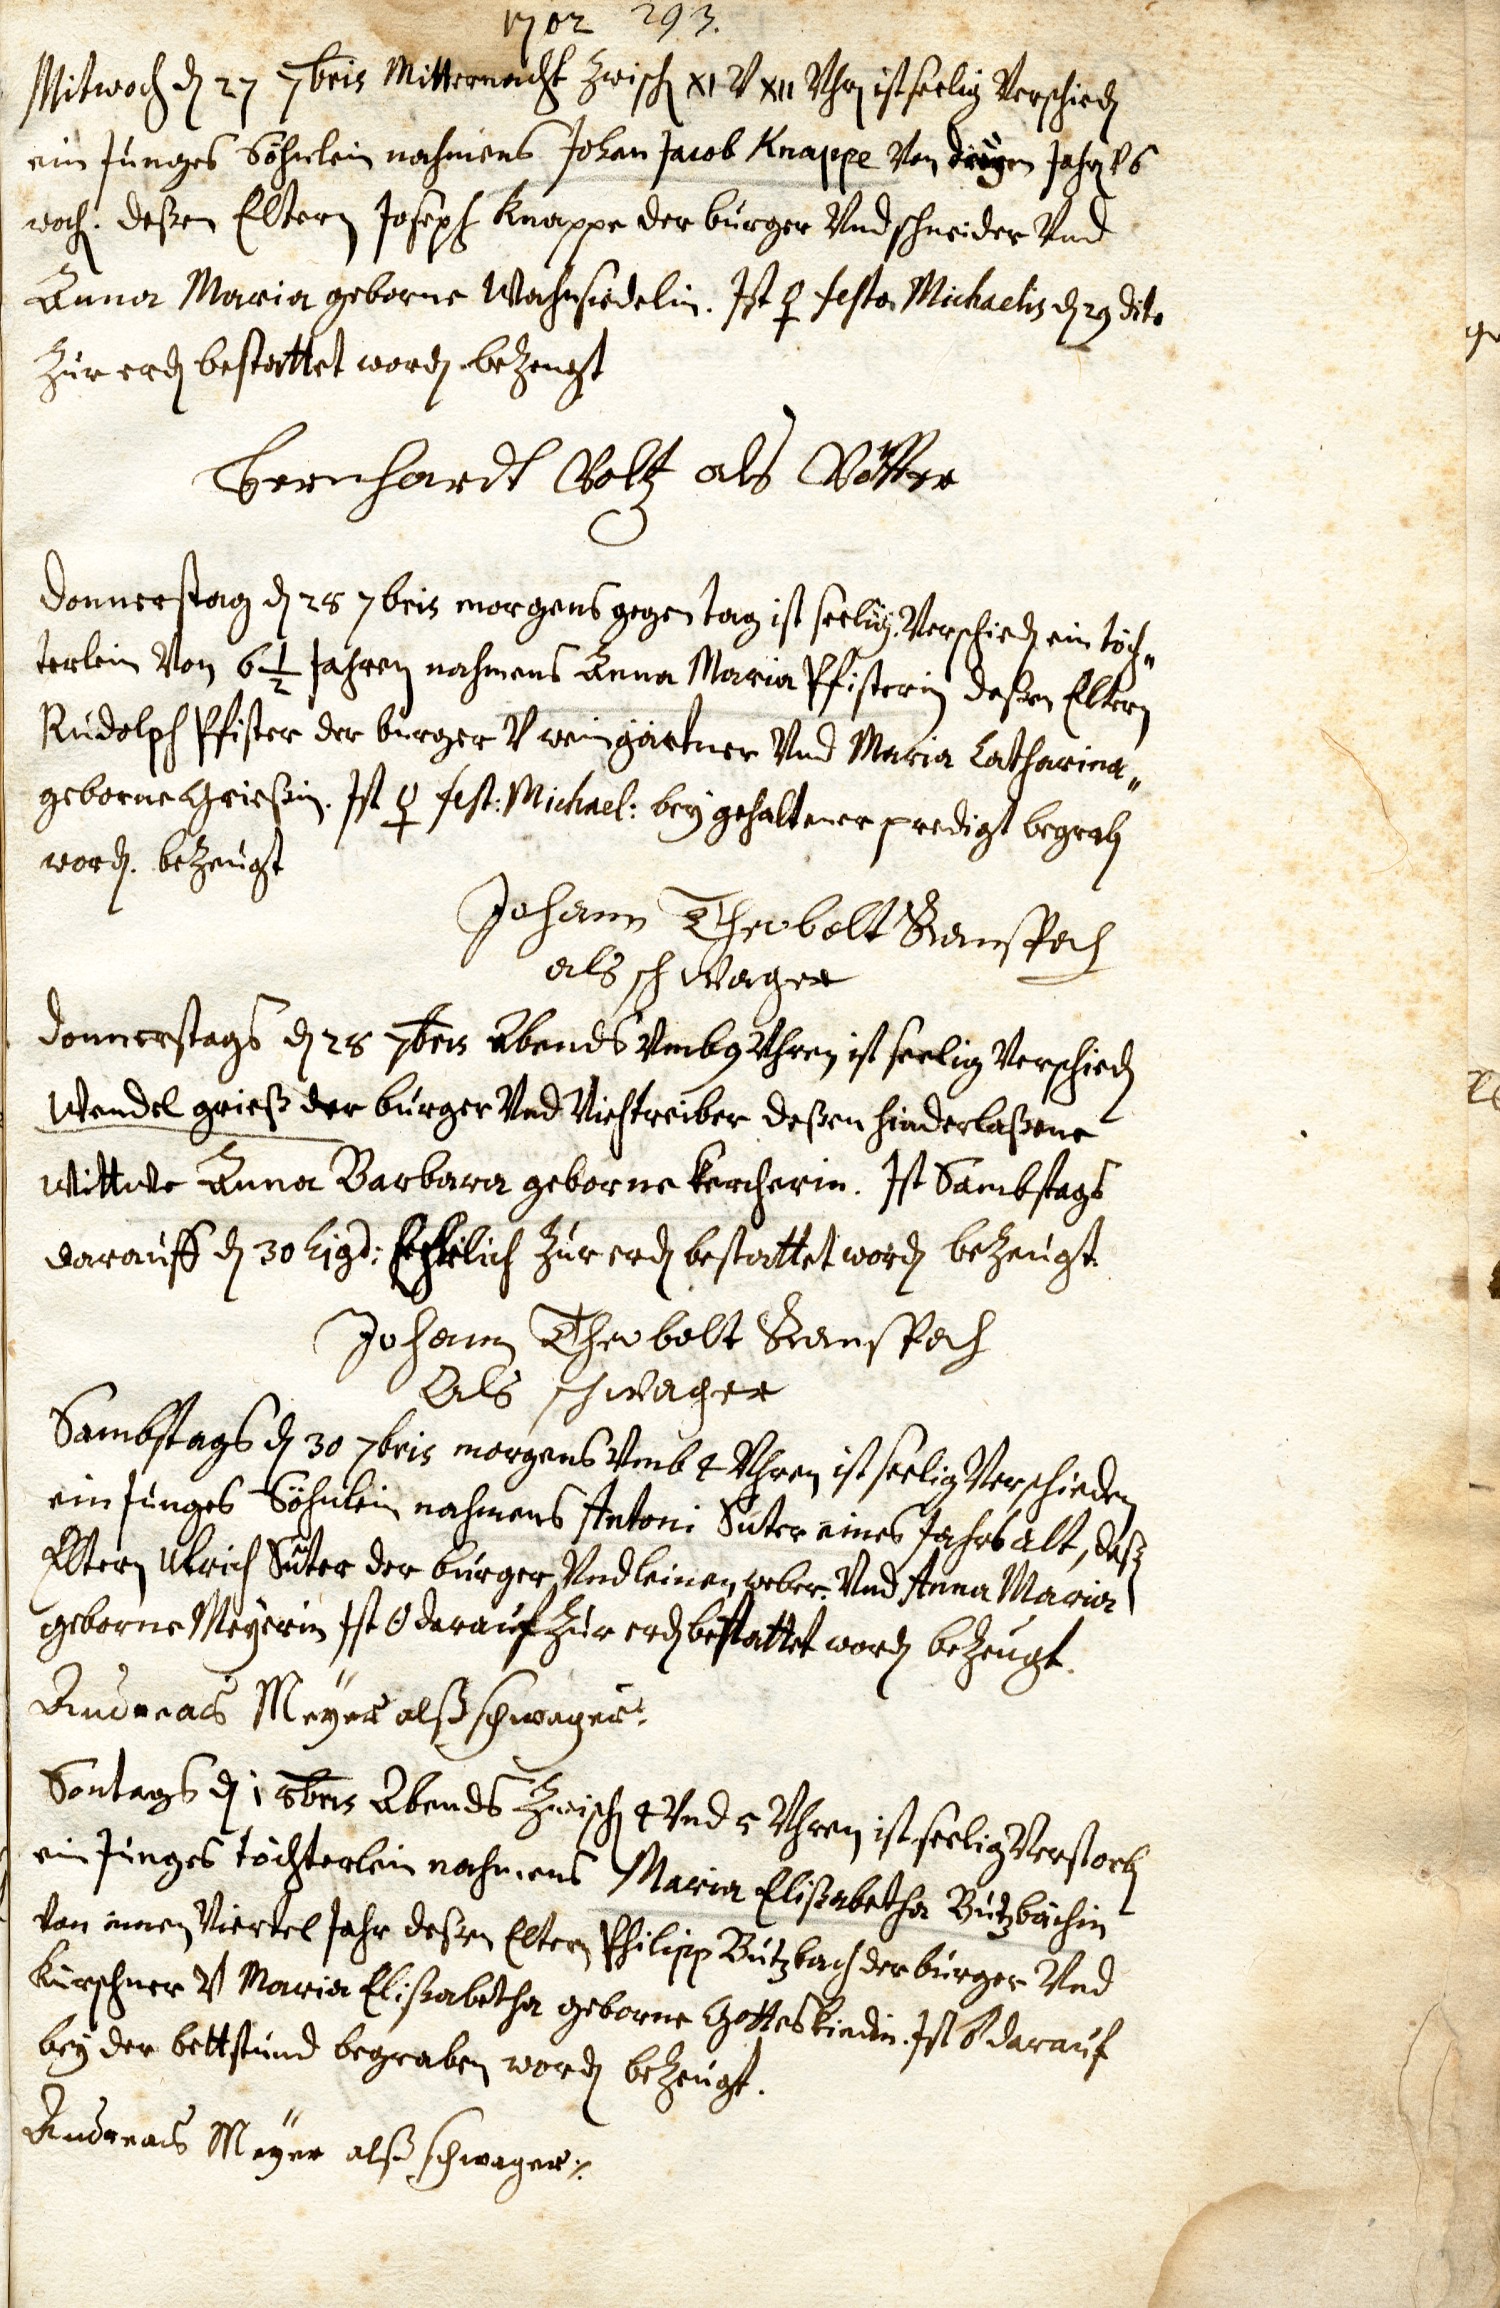 1702 293.
Mitwoch dn 27 7bris Mitternacht zwisch XI V XII Uhrn ist seelig Verschiedn
ein Junges Söhnlein nahmens Johan Jacob Knappe Von dreyen Jahrn V 6
woch. deßen Eltern Joseph Knappe der burger Und schneider Und
Anna Maria geborne Wahnsiedelin. Ist ♀ festo Michaelis dn 29 dito
Zur erdn bestattet wordn bezeugt
Bernhardt Voltz als Vötter
Donnerstag dn 28 7bris morgens gegen tag ist seelig Verschiedn ein töch„
terlein Von 6 1/2 Jahren nahmens Anna Maria Pfisterin deßen Eltern
Rudolph Pfister der burger V weingärtner Und Maria Catharina„
geborne Grießin. Ist ♀ fest: Michael: bey gehaltener predigt begrabn
wordn. bezeugt
Johann Theobolt Ranspach
als schwager
Donnerstags dn 28 7bris Abends Umb 9 Uhren ist seelig Verschiedn
Wendel grieß der burger Und Viehtreiber deßen hinderlaßene
Wittwe Anna Barbara geborne Kercherin. Ist Sambstags
darauff dn 30 zur erdn bestattet wordn bezeugt.
Johann Theobolt Ranspach
Als schwager
Sambstags dn 30 7bris morgens Umb 4 Uhren ist seelig Verschieden
ein Junges Söhnlein nahmens Antoni Suter eines Jahrs alt, deßn
Eltern Ulrich Suter der burger Und leinenweber. Und Anna Maria
geborne Meyerin Ist ☉ darauf zur erdn bestattet wordn bezeugt.
Andreas Meyer alß schwager.
Sontags dn 1 8bris Abends zwischn 4 Und 5 Uhren ist seelig Verstorbn
ein Junges töchterlein nahmens Maria Elisabetha Butzbächin
Von einen Viertel Jahr deßen Eltern Philipp Butzbach der burger Und
Kürschner V Maria Elisabetha geborne Gotteskindin. Ist darauf
bey der bettstund begraben wordn bezeugt.
Andreas Meyer alß schwager